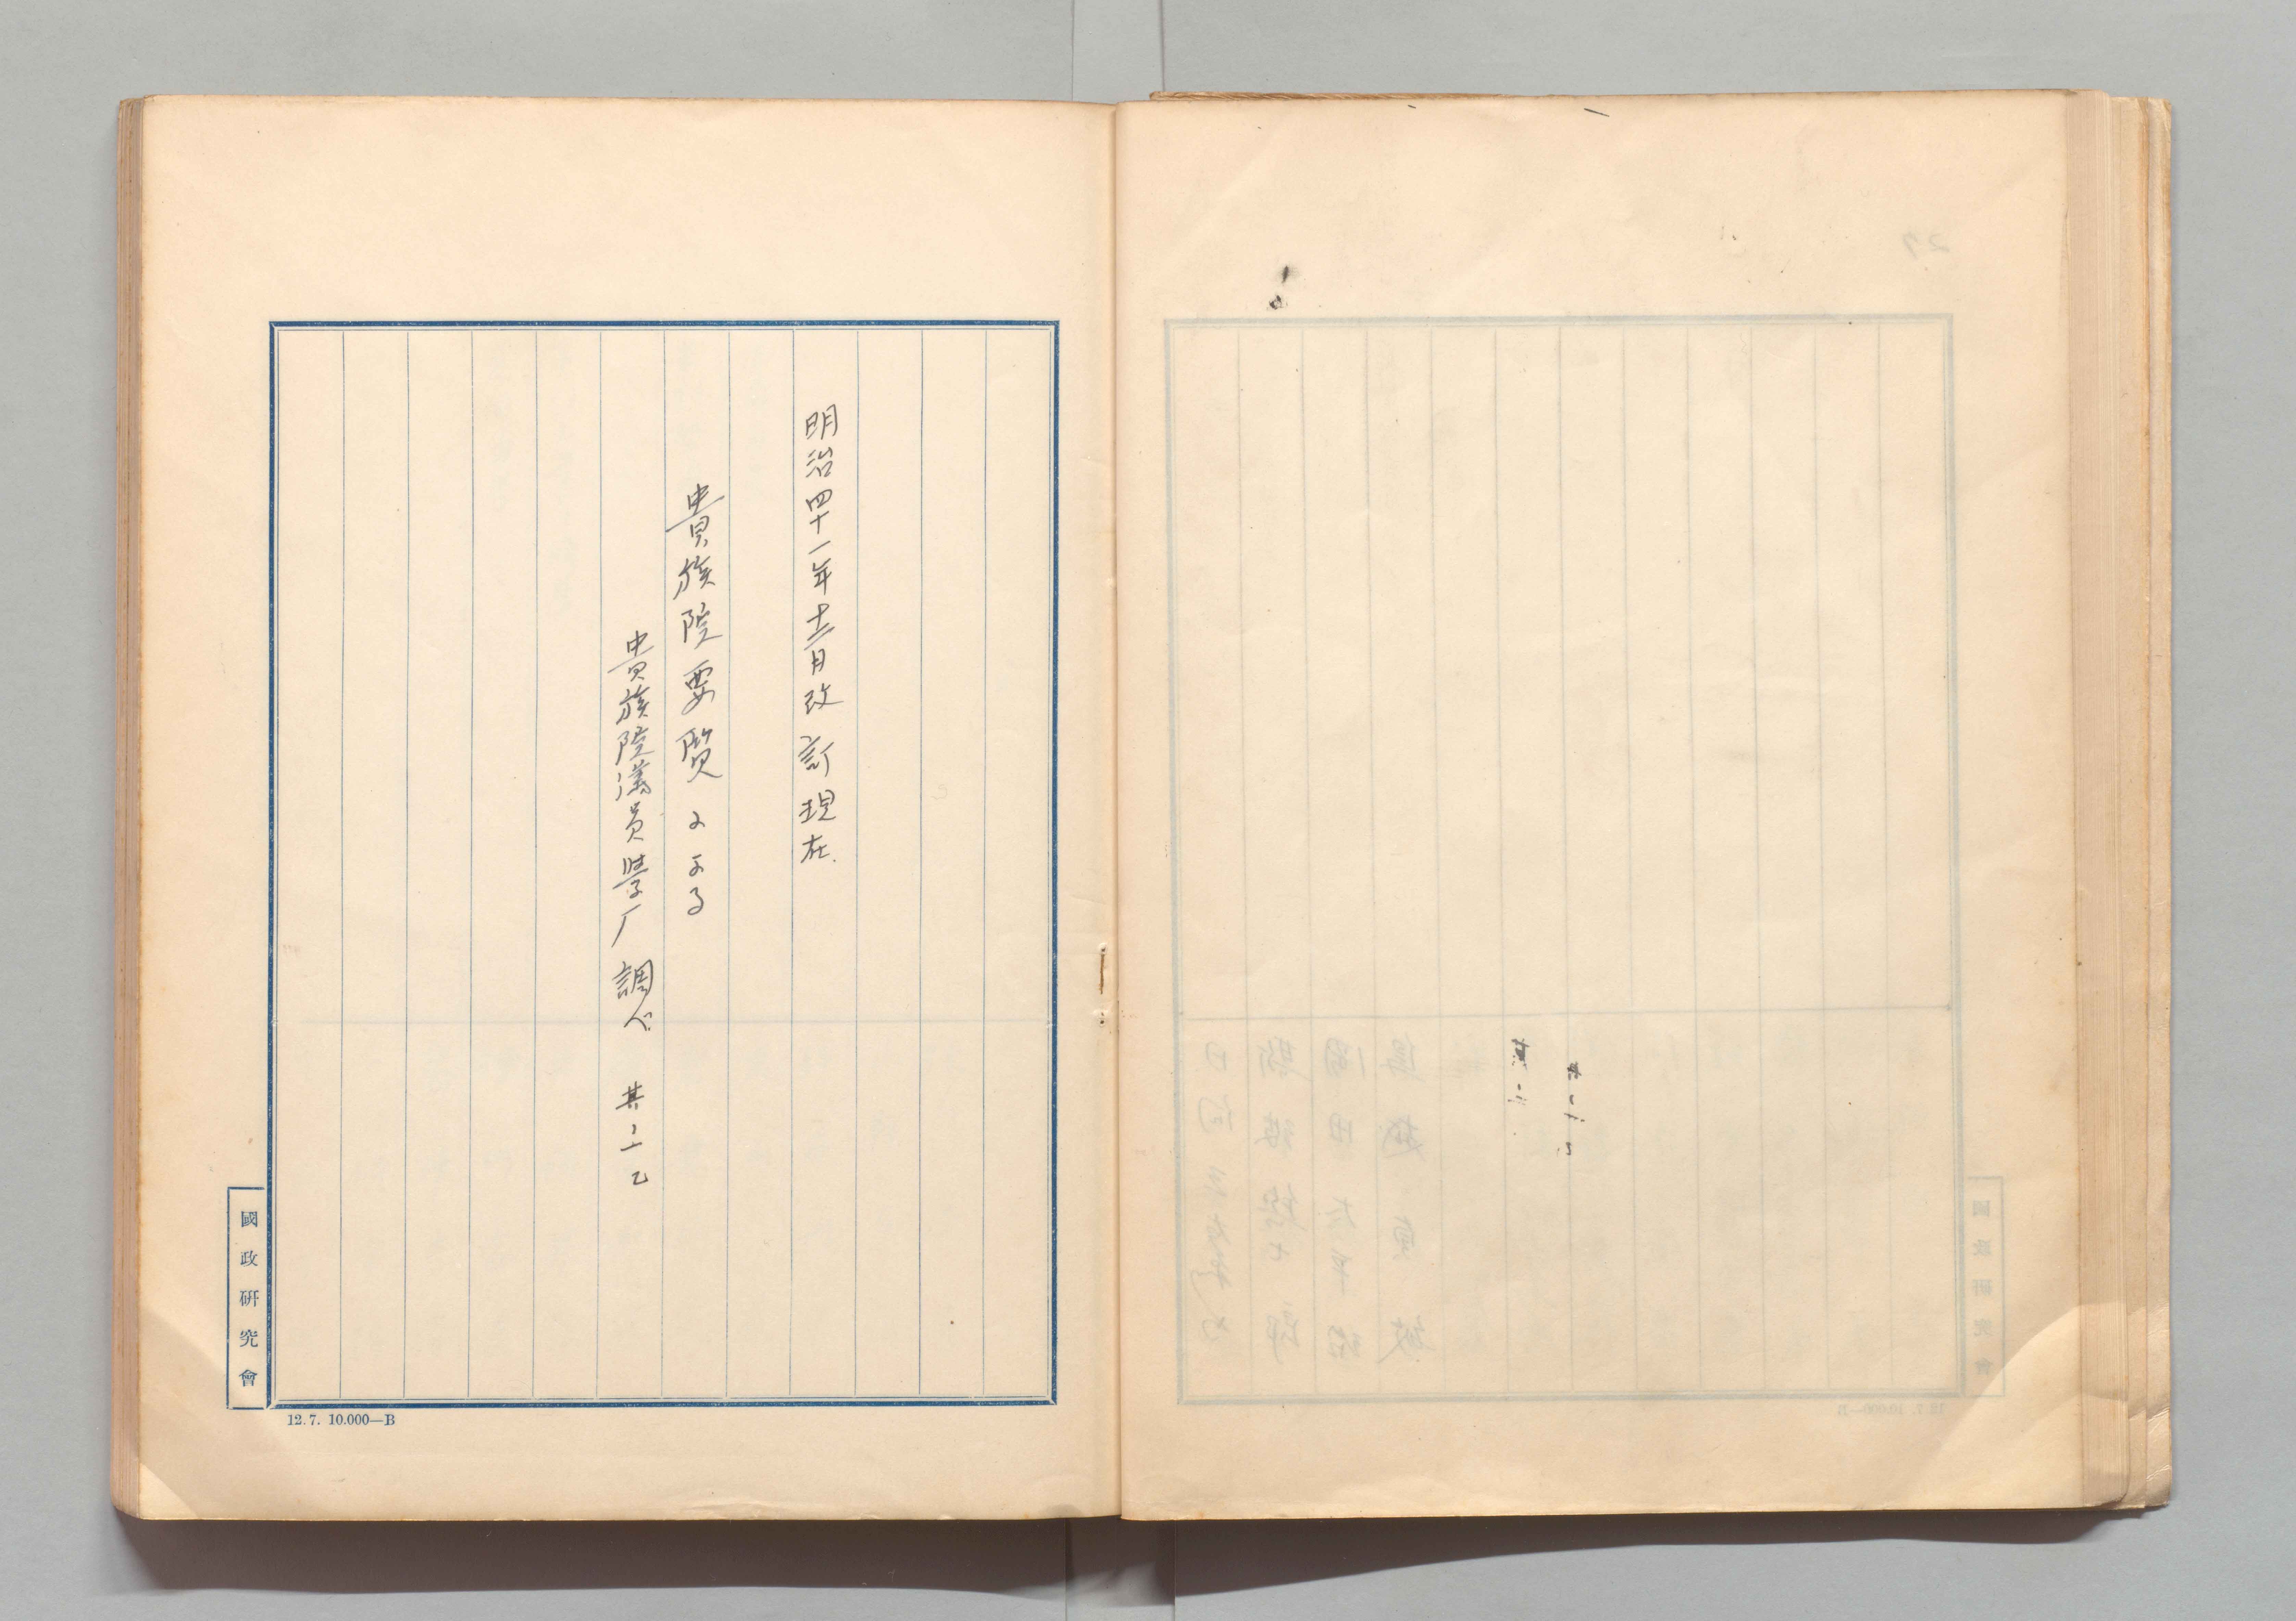 明治四十一年十二月改訂現在
貴族院要覧による
貴族院議員學厂調べ 其ノ一 乙
國政研究會
12.7. 10.000—B